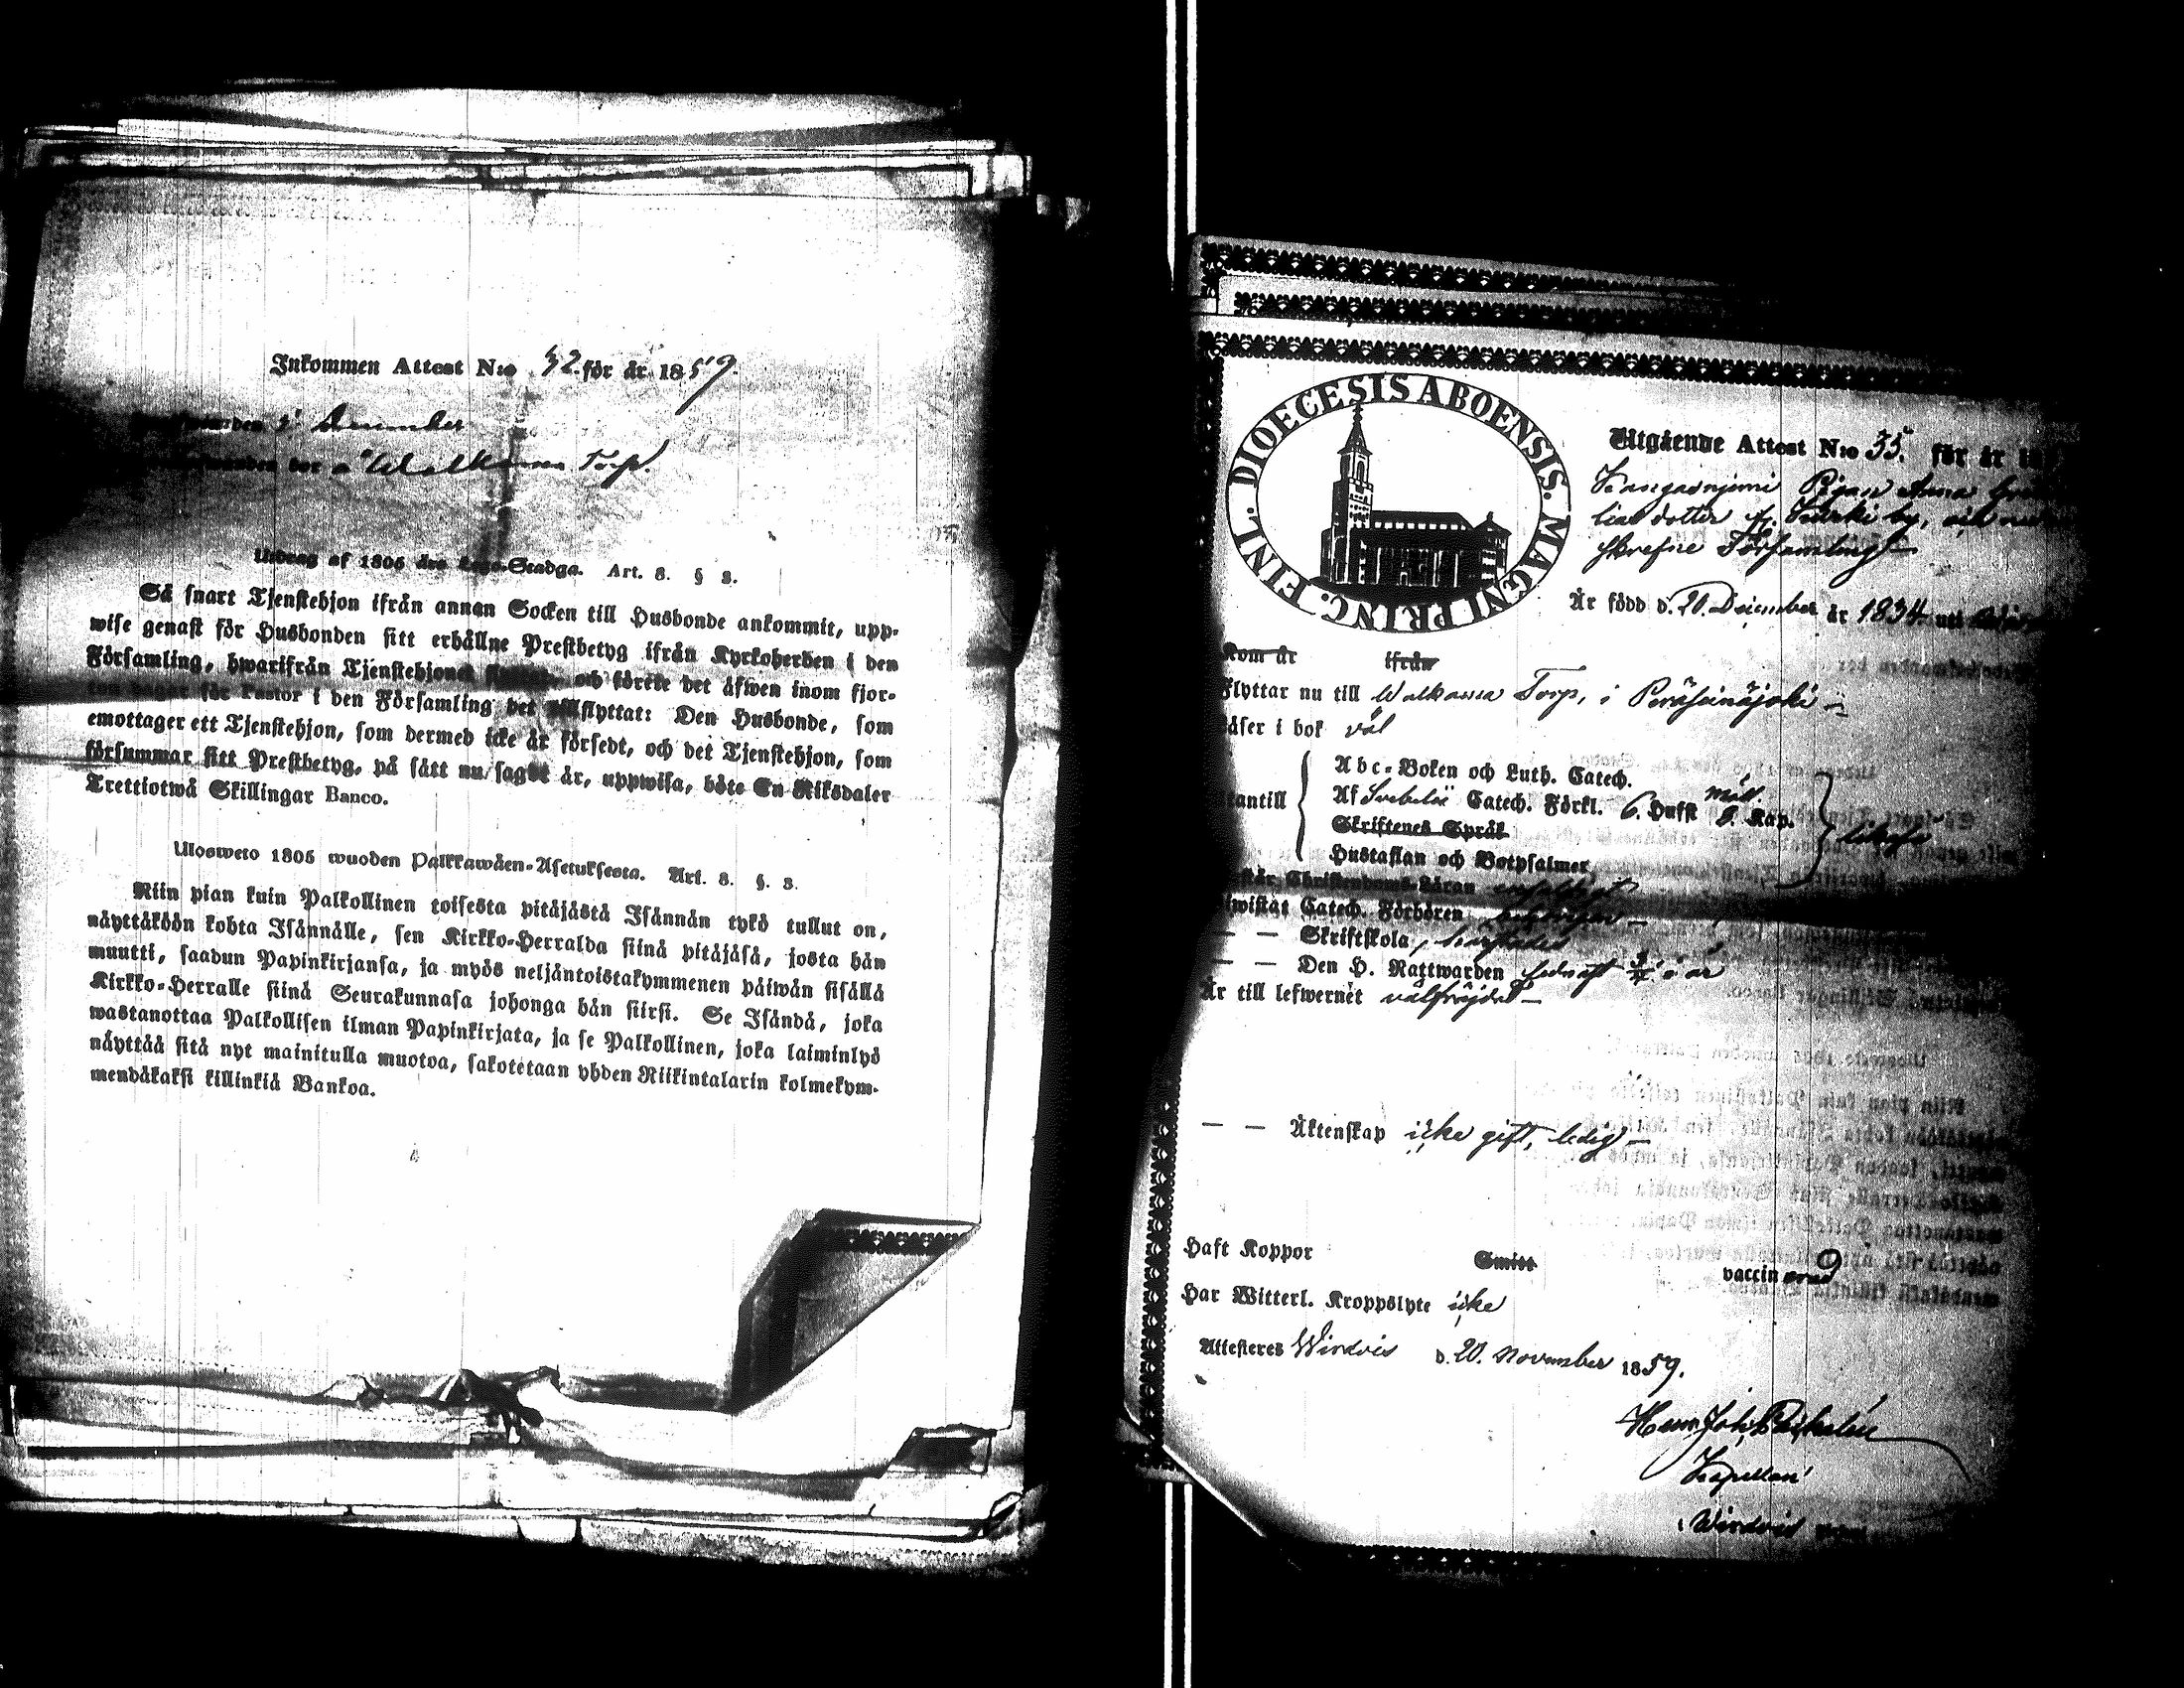 Inkommen Attest N:o 32. för år 1859.
den December
bor å Walkama Torp.
Utdrag af 1805 års Lego-Stadga. Art. 8. § 3.
Så snart Tjenstehjon ifrån annan Socken till Husbonde ankommit, upp-
wise genast för Husbonden sitt erhållne Prestbetyg ifrån Kyrkoherden i den
Församling, hwarifrån Tjenstehjonet och förete det äfwen inom fjor-
ton dagar för Pastor i den Församling det tillflyttat: Den Husbonde, som
emottager ett Tjenstehjon, som dermed icke är försedt, och det Tjenstehjon, som
försummar sitt Prestbetyg, på sätt nu sagdt är, uppwisa, böte En Riksdaler
Trettiotwå Skillingar Banco.
Ulosweto 1805 wuoden Palkkawäen-Asetuksesta. Art. 8. §. 3.
Niin pian kuin Palkollinen toisesta pitäjästä Isännän tykö tullut on,
näyttäköön kohta Isännälle, sen Kirkko-Herralda siinä pitäjäsä, josta hän
muutti, saadun Papinkirjansa, ja myös neljäntoistakymmenen päiwän sisällä
Kirkko-Herralle siinä Seurakunnasa johonga hän siirsi. Se Isändä, joka
wastanottaa Palkollisen ilman Papinkirjata, ja se Palkollinen, joka laiminlyö
näyttää sitä nyt mainitulla muotoa, sakotetaan yhden Riikintalarin kolmekym-
mendäkaksi killinkiä Bankoa.
DIOECESIS ABOENSIS. MAGNI PRINC. FINL.
Utgående Attest N:o 35. för år
Pigan Anna
dotter fr. by,
skrefne Församling
Är född d. 20. December år 1834 uti
Kom år ifrån
Flyttar nu till Walkama Torp, i Peräseinäjoki
Läser i bok väl
Abc-Boken och Luth. Catech.
utantill Af Svebelii Catech. Förkl. 6. Hufst 8. Kap.
Skriftenes Språk
Hustaflan och Botpsalmer
Christendoms-Läran
Bewistat Catech. Förhören
— — Skriftskola
— — Den H. Nattwarden sednast i år
Är till lefwernet välfräjdad
— — Äktenskap icke gift, ledig
Haft Koppor Smitt vaccin
Har Witterl. Kroppslyte icke
Attesteras Wirdois d. 20. November 1859.
Kapellan
i Wirdois